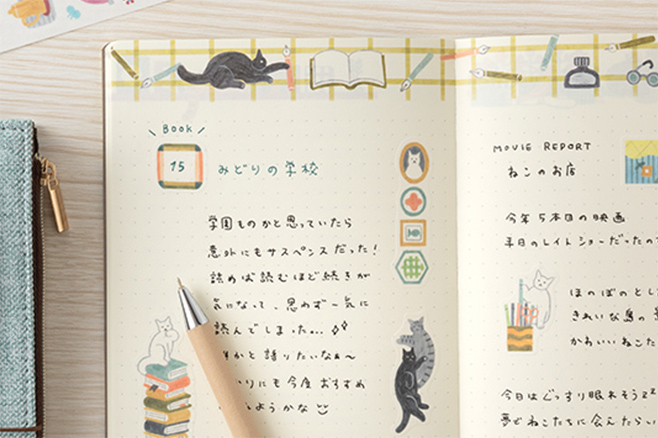 \ BOOK /
15
みどりの学校
学園ものかと思っていたら
意外にもサスペンスだった!
読めば読むほど続きが
気になって、思わず一気に
読んでしまった…
かと語りたいなぁ〜
りにも今度おすすめ
ようかな
MOVIE REPORT
ねこのお店
今年5本目の映画
平日のレイトショーだったの
ほのぼのとし
きれいな島の
かわいいねこた
今日はぐっすり眠れそうzz
夢でねこたちに会えたらい